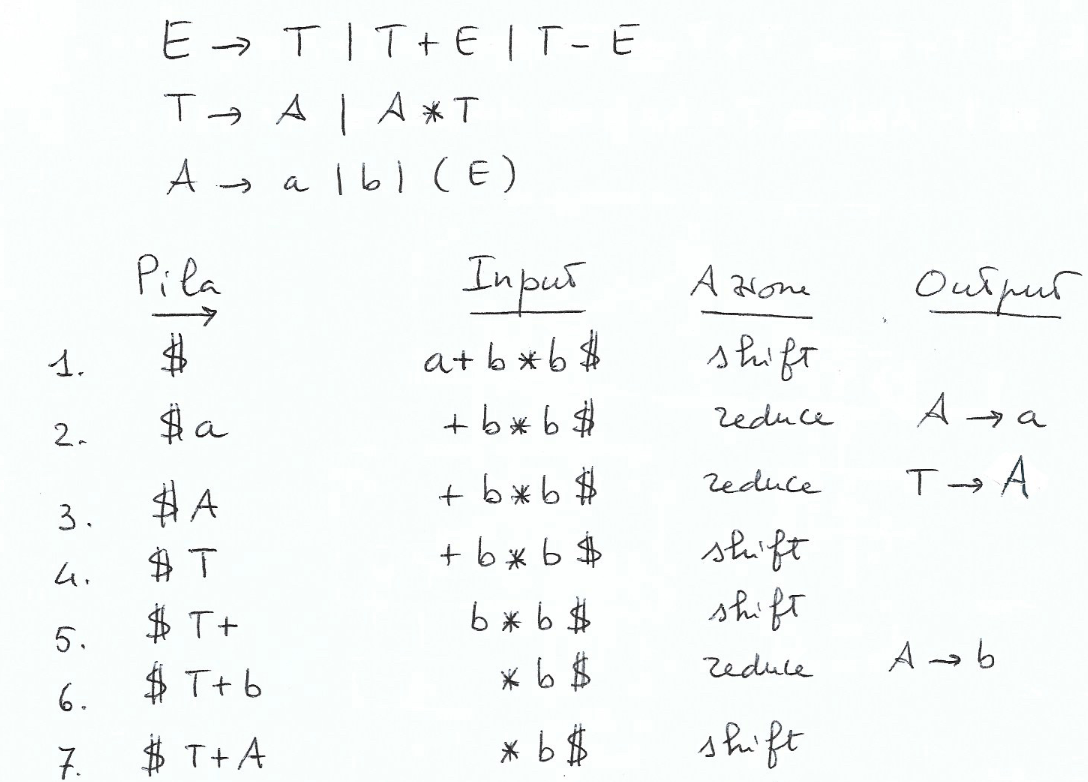 E → T | T + E | T - E
T → A | A * T
A → a | b | ( E )
Pila Input Azione Output
1. $ a + b * b $ shift
2. $ a + b * b $ reduce A → a
3. $ A + b * b $ reduce T → A
4. $ T + b * b $ shift
5. $ T + b * b $ shift
6. $ T + b * b $ reduce A → b
7. $ T + A * b $ shift